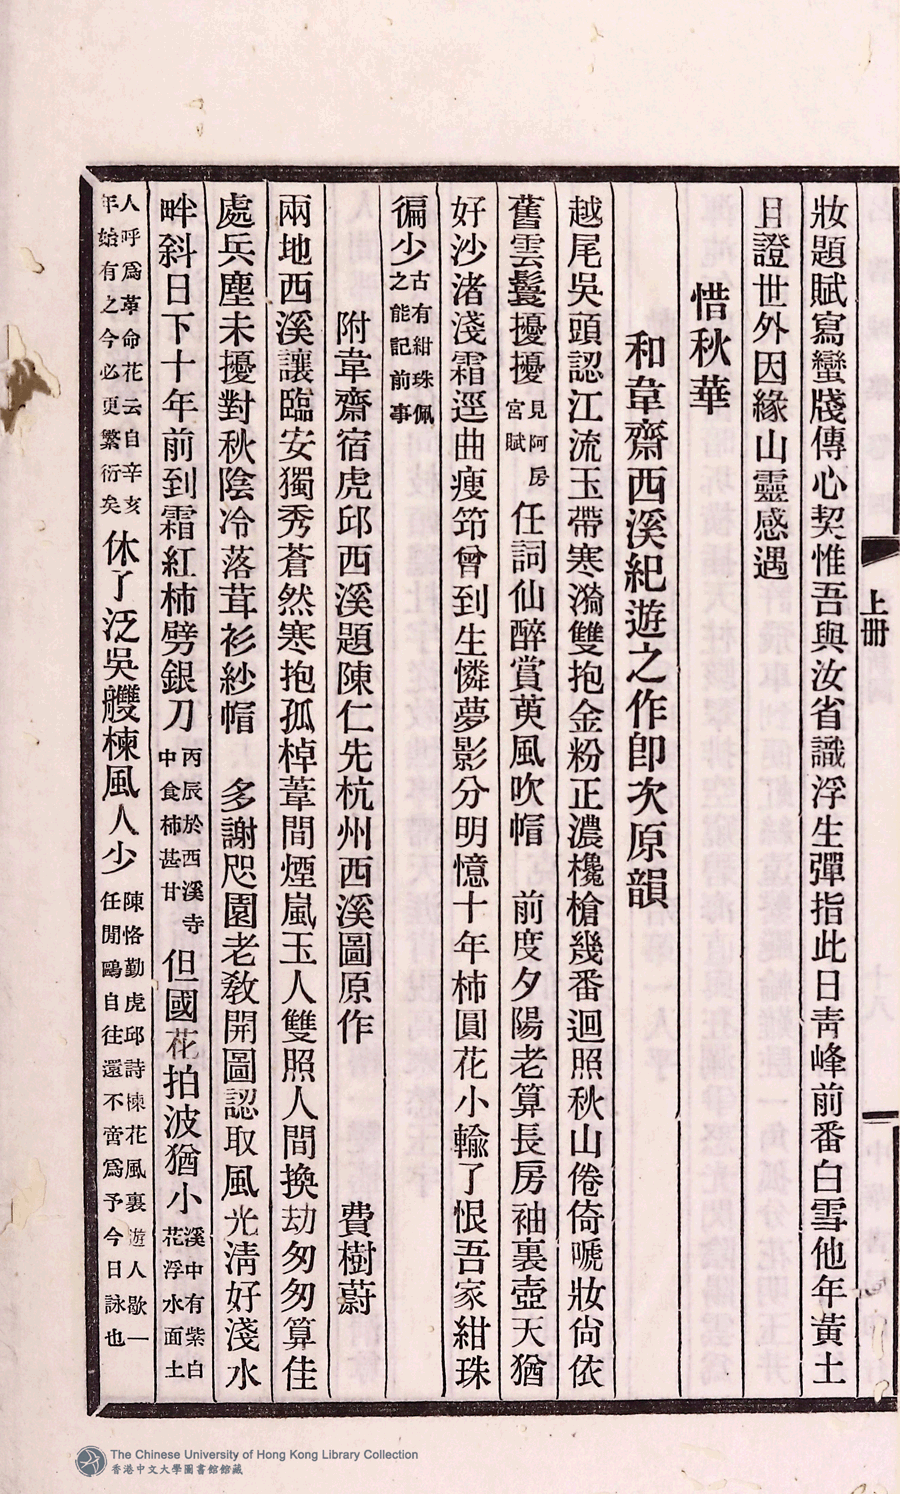 妝題賦寫蠻牋傳心契惟吾與汝省識浮生彈指此日靑峰前番白雪他年黃土
且證世外因緣山靈感遇
惜秋華
和韋齋西溪紀遊之作卽次原韻
越尾吳頭認江流玉帶寒漪雙抱金粉正濃欃槍幾番迴照秋山倦倚嗁妝尙依
舊雲鬟擾擾見阿房宮賦任詞仙醉賞萸風吹帽　前度夕陽老算長房袖裏壺天猶
好沙渚淺霜逕曲瘦筇曾到生憐夢影分明憶十年柿圓花小輸了恨吾家紺珠
徧少古有紺珠佩之能記前事
附韋齋宿虎邱西溪題陳仁先杭州西溪圖原作　費樹蔚
兩地西溪讓臨安獨秀蒼然寒抱孤棹葦間煙嵐玉人雙照人間換劫匆匆算佳
處兵塵未擾對秋陰冷落茸衫紗帽　多謝咫園老敎開圖認取風光淸好淺水
畔斜日下十年前到霜紅柿劈銀刀丙辰於西溪寺中食柿甚甘但國花拍波猶小溪中有紫白花浮水面土
人呼爲革命花云自辛亥年始有之今必更繁衍矣休了泛吳艭楝風人少陳恪勤虎邱詩楝花風裏遊人歇一任閒鷗自往還不啻爲予今日詠也
上冊
The Chinese University of Hong Kong Library Collection
香港中文大學圖書館館藏